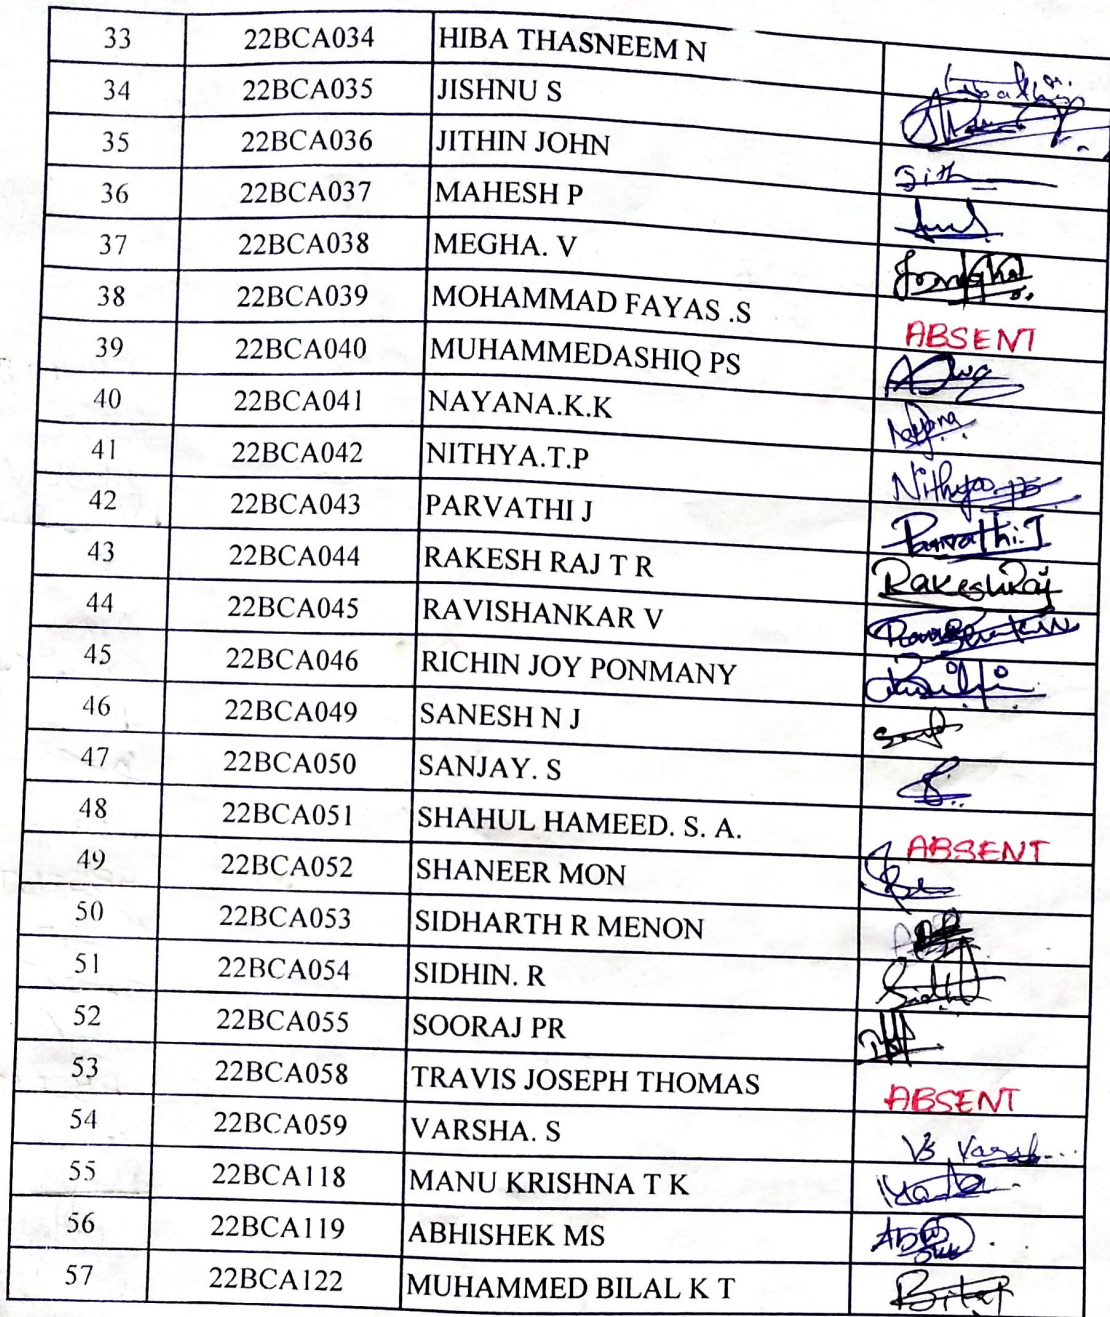 33 22BCA034 HIBA THASNEEM N
34 22BCA035 JISHNU S
35 22BCA036 JITHIN JOHN Jith
36 22BCA037 MAHESH P
37 22BCA038 MEGHA. V
38 22BCA039 MOHAMMAD FAYAS .S ABSENT
39 22BCA040 MUHAMMEDASHIQ PS
40 22BCA041 NAYANA.K.K
41 22BCA042 NITHYA.T.P
42 22BCA043 PARVATHI J Parvathi.J
43 22BCA044 RAKESH RAJ T R RakeshRaj
44 22BCA045 RAVISHANKAR V
45 22BCA046 RICHIN JOY PONMANY
46 22BCA049 SANESH N J
47 22BCA050 SANJAY. S
48 22BCA051 SHAHUL HAMEED. S. A. ABSENT
49 22BCA052 SHANEER MON
50 22BCA053 SIDHARTH R MENON
51 22BCA054 SIDHIN. R
52 22BCA055 SOORAJ PR
53 22BCA058 TRAVIS JOSEPH THOMAS ABSENT
54 22BCA059 VARSHA. S
55 22BCA118 MANU KRISHNA T K
56 22BCA119 ABHISHEK MS
57 22BCA122 MUHAMMED BILAL K T